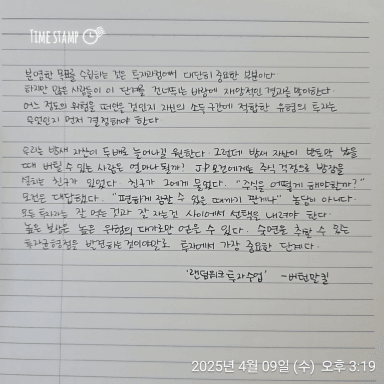 TIME STAMP
분명한 목표를 수립하는 것은 투자과정에서 대단히 중요한 부분이다
하지만 많은 사람들이 이 단계를 건너뛰는 바람에 재앙적인 결과를 맞이한다.
어느 정도의 위험을 떠안을 것인지 자신의 소득구간에 적합한 유형의 투자는
무엇인지 먼저 결정해야 한다.
우리는 밤새 자산이 두배로 늘어나길 원한다. 그런데 밤새 자산이 반토막 났을
때 버틸 수 있는 사람은 얼마나 될까? JP모건에게는 주식 걱정으로 밤잠을
설치는 친구가 있었다. 친구가 그에게 물었다. "주식을 어떻게 해야할까?"
모건은 대답했다. "편하게 잠잘 수 있을 때까지 팔게나" 농담이 아니다.
모든 투자자는 잘 먹는 것과 잘 자는 것 사이에서 선택을 내려야 한다.
높은 보상은 높은 위험의 대가로만 얻을 수 있다. 숙면을 취할 수 있는
투자 을 발견하는 것이야말로 투자에서 가장 중요한 단계다.
'랜덤워크 투자수업' -버턴말킬
2025년 4월 09일 (수) 오후 3:19